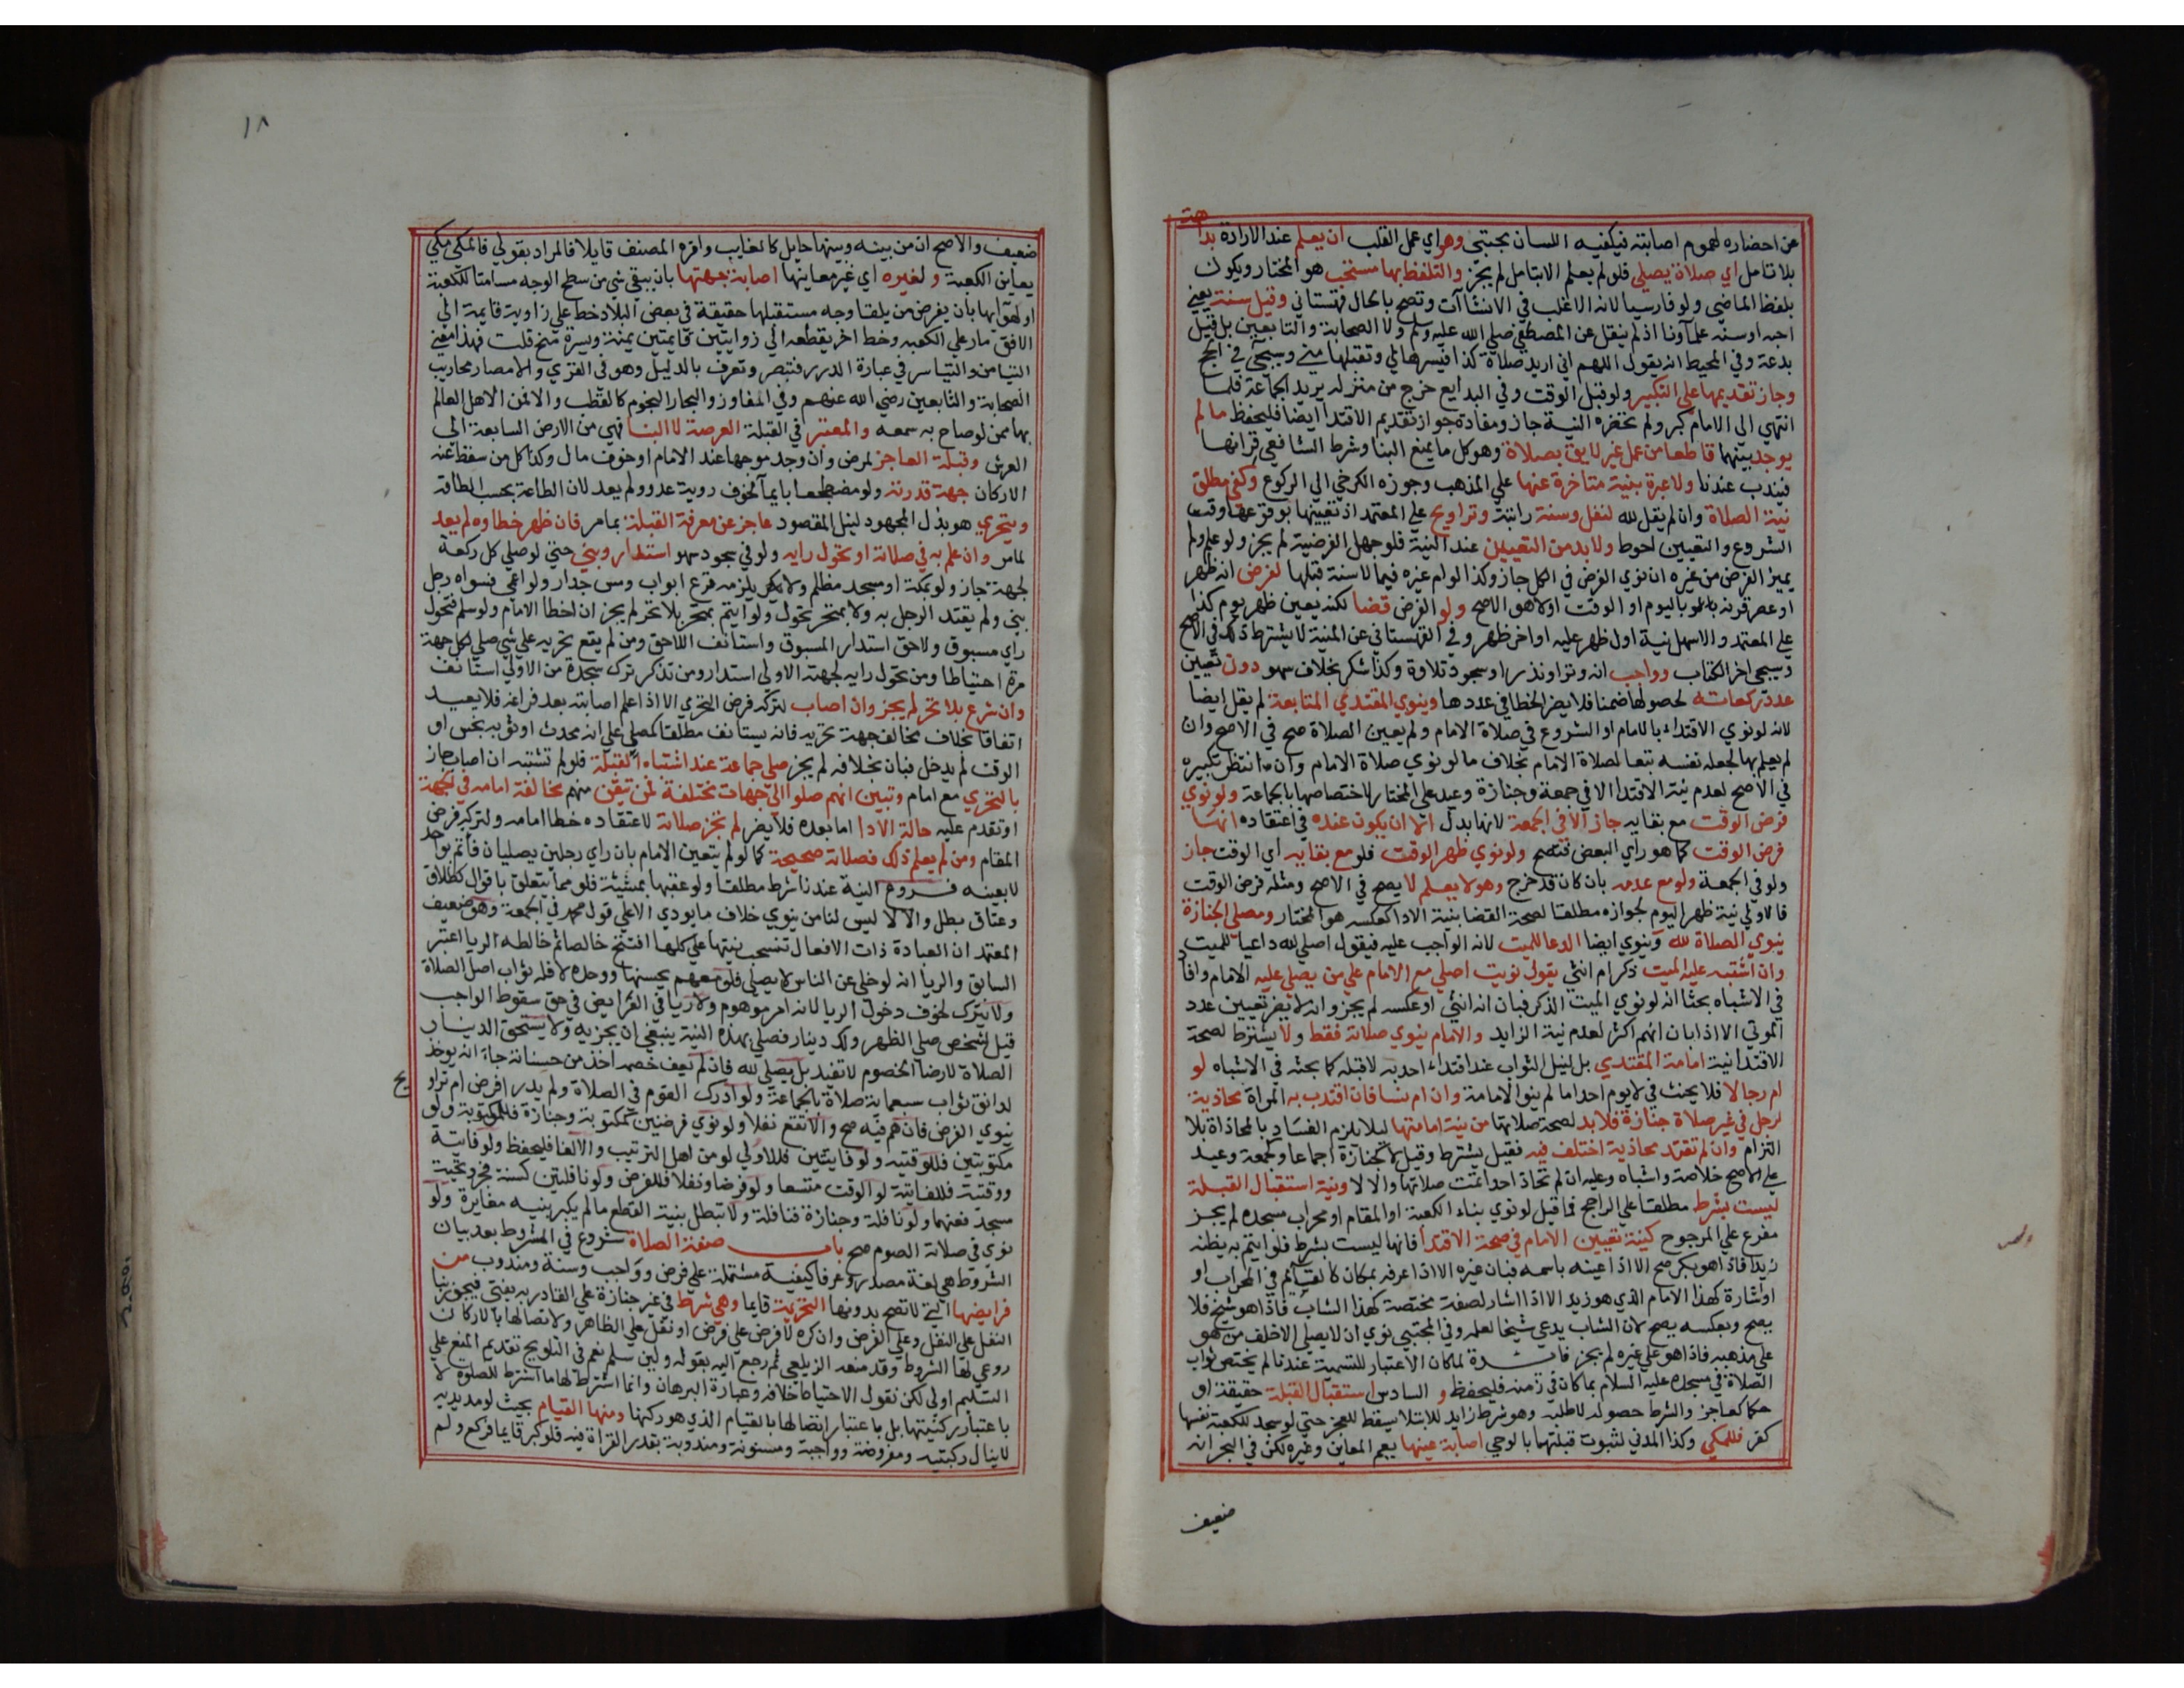 عن احضاره لهموم اصابته فيكفيه اللسان مجتبى وهو اي عمل القلب ان يعلم عند الارادة بداهة
بلا تامل اي صلاة يصلي فلو لم يعلم الا بتامل لم يجز والتلفظ بها مستحب هو المختار ويكون
بلفظ الماضي ولو فارسيا لانه الاغلب في الانشاآت وتصح بالحال قهستاني وقيل سنة يعني
احبه او سنه علماونا اذ لم ينقل عن المصطفي صلي الله عليه وسلم ولا الصحابة والتابعين بل قيل
بدعة وفي المحيط انه يقول اللهم اني اريد صلاة كذا فيسرها لي وتقبلها مني وسيجي في الحج
وجاز تقديمها على التكبير ولو قبل الوقت وفي البدايع خرج من منزله يريد الجماعة فلما
انتهي الي الامام كبر ولم تحضره النية جاز ومفاده جواز تقديم الاقتدا ايضا فليحفظ ما لم
يوجد بينهما قاطعا من عمل غير لايق بصلاة وهو كل ما يمنع البنا وشرط الشافعي قرانها
فيندب عندنا ولا عبرة بنية متاخرة عنها علي المذهب وجوزه الكرخي الي الركوع وكفي مطلق
نية الصلاة وان لم يقل لله لنفل وسنة راتبة وتراويح علي المعتمد اذ تعيينها بوقوعها وقت
الشروع والتعيين احوط ولا بد من التعيين عند النية فلو جهل الفرضية لم يجز ولو علم ولم
يميز الفرض من غيره ان نوي الفرض في الكل جاز وكذا لو ام غيره فيما لا سنة قبلها لفرض انه ظهر
او عصر قرنه باليوم او الوقت اولا هو الاصح ولو الفرض قضا لكنه يعين ظهر يوم كذا
علي المعتمد والاسهل نية اول ظهر عليه او اخر ظهر وفي القهستاني عن المنية لا يشترط ذلك في الاصح
وسيجي اخر الكتاب وواجب انه وتر او نذر او سجود تلاوة وكذا شكر بخلاف سهو دون تعيين
عدد ركعاته لحصولها ضمنا فلا يضر الخطا في عددها وينوي المقتدي المتابعة لم يقل ايضا
لانه لو نوي الاقتداء بالامام او الشروع في صلاة الامام ولم يعين الصلاة صح في الاصح وان
لم يعلم بها لجعله نفسه تبعا لصلاة الامام بخلاف ما لو نوي صلاة الامام وان انتظر تكبيره
في الاصح لعدم نية الاقتدا الا في جمعة وجنازة وعيد علي المختار لاختصاصها بالجماعة ولو نوي
فرض الوقت مع بقايه جاز الا في الجمعة لانها بدل الا ان يكون عنده في اعتقاده انها
فرض الوقت كما هو راي البعض فتصح ولو نوي ظهر الوقت فلو مع بقايه اي الوقت جاز
ولو في الجمعة ولو مع عدمه بان كان قد خرج وهو لا يعلم لا يصح في الاصح ومثله فرض الوقت
فالاولي نية ظهر اليوم لجوازه مطلقا لصحة القضا بنية الادا كعكسه هو المختار ومصلي الجنازة
ينوي الصلاة لله وينوي ايضا الدعا للميت لانه الواجب عليه فيقول اصلي لله داعيا للميت
وان اشتبه عليه الميت ذكر ام انثي يقول نويت اصلي مع الامام علي من يصلي عليه الامام وافاد
في الاشباه بحثا انه لو نوي الميت الذكر فبان انه انثي او عكسه لم يجز وانه لا يضر تعيين عدد
الموتي الا اذا بان انهم اكثر لعدم نية الزايد والامام ينوي صلاته فقط ولا يشترط لصحة
الاقتدا نية امامة المقتدي بل لنيل الثواب عند اقتداء احد به لا قبله كما بحثه في الاشباه لو
ام رجالا فلا يحنث في لا يوم احدا ما لم ينو الامامة وان ام نسا فان اقتدت به المراة محاذية
لرجل في غير صلاة جنازة فلا بد لصحة صلاتها من نية امامتها ليلا يلزم الفساد بالمحاذاة بلا
التزام وان لم تقتد محاذية اختلف فيه فقيل يشترط وقيل لا كجنازة اجماعا وكجمعة وعيد
علي الاصح خلاصة واشباه وعليه ان لم تحاذ احدا تمت صلاتها والا لا ونية استقبال القبلة
ليست بشرط مطلقا علي الراجح فما قيل لو نوي بناء الكعبة او المقام او محراب مسجده لم يجز
مفرع علي المرجوح كنية تعيين الامام في صحة الاقتدا فانها ليست بشرط فلو ايتم به يظنه
زيدا فاذا هو بكر صح الا اذا عينه باسمه فبان غيره الا اذا عرفه بمكان كالقايم في المحراب او
او اشارة كهذا الامام الذي هو زيد الا اذا اشار لصفة مختصة كهذا الشاب فاذا هو شيخ فلا
يصح وبعكسه يصح لان الشاب يدعي شيخا لعلمه وفي المجتبي نوي ان لا يصلي الا خلف من هو
علي مذهبه فاذا هو علي غيره لم يجز فايدة لما كان الاعتبار للتسمية عندنا لم يختص ثواب
الصلاة في مسجده عليه السلام بما كان في زمنه فليحفظ و السادس استقبال القبلة حقيقة او
حكما كعاجز والشرط حصوله لا طلبه وهو شرط زايد للابتلا يسقط للعجز حتي لو سجد للكعبة نفسها
كفر فللمكي وكذا المدني لثبوت قبلتها بالوحي اصابة عينها يعم المعاين وغيره لكن في البحر انه
ضعيف
١٨
ضعيف والاصح ان من بينه وبينها حايل كالغايب واقره المصنف قايلا فالمراد بقولي فللمكي مكي
يعاين الكعبة ولغيره اي غير معاينها اصابة جهتها بان يبقي شي من سطح الوجه مسامتا للكعبة
او لهوائها بان يفرض من تلقا وجه مستقبلها حقيقة في بعض البلاد خط علي زاوية قايمة الي
الافق مار علي الكعبه وخط اخر يقطعه الي زوايتين قايمتين يمنة ويسرة منح قلت فهذا معني
التيامن والتياسر في عبارة الدرر فتبصر وتعرف بالدليل وهو في القري والامصار محاريب
الصحابة والتابعين رضي الله عنهم وفي المفاوز والبحار النجوم كالقطب والا فمن الاهل العالم
بها ممن لو صاح به سمعه والمعتبر في القبلة العرصة لا البنا فهي من الارض السابعة الي
العرش وقبلة العاجز لمرض وان وجد موجها عند الامام او خوف مال وكذا كل من سقط عنه
الاركان جهة قدرته ولو مضطجعا بايماء لخوف روية عدو ولم يعد لان الطاعة بحسب الطاقة
ويتحري هو بذل المجهود لنيل المقصود عاجز عن معرفة القبلة بما مر فان ظهر خطاوه لم يعد
لما مر وان علم به في صلاته او تحول رايه ولو في سجود سهو استدار وبني حتي لو صلي كل ركعة
لجهة جاز ولو بمكة او مسجد مظلم ولا يلزمه قرع ابواب ومس جدار ولو اعمي فسواه رجل
بني ولم يقتد الرجل به ولا بمتحر تحول ولو ايتم بمتحر بلا تحر لم يجز ان اخطا الامام ولو سلم فتحول
راي مسبوق ولاحق استدار المسبوق واستانف اللاحق ومن لم يقع تحريه علي شي صلي لكل جهة
مرة احتياطا ومن تحول رايه لجهته الاولي استدار ومن تذكر ترك سجدة من الاولي استانف
وان شرع بلا تحر لم يجز وان اصاب لتركه فرض التحري الا اذا علم اصابته بعد فراغه فلا يعيد
اتفاقا بخلاف مخالف جهة تحريه فانه يستانف مطلقا كمصلي علي انه محدث او ثوبه نجس او
الوقت لم يدخل فبان بخلافه لم يجز صلي جماعة عند اشتباه القبلة فلو لم تشتبه ان اصاب جاز
بالتحري مع امام وتبين انهم صلوا الي جهات مختلفة فمن تيقن منهم مخالفة امامه في الجهة
او تقدم عليه حالة الادا اما بعده فلا يضر لم تجز صلاته لاعتقاده خطا امامه ولتركه فرض
المقام ومن لم يعلم ذلك فصلاته صحيحة كما لو لم يتعين الامام بان راي رجلين يصليان فأتم بواحد
لا بعينه فروع النية عندنا شرط مطلقا ولو عقبها بمشيئة فلو مما يتعلق باقوال كطلاق
وعتاق بطل والا لا ليس لنا من ينوي خلاف ما يودي الا علي قول محمد في الجمعة وهو ضعيف
المعتمد ان العبادة ذات الافعال تنسحب نيتها علي كلها افتتح خالصا ثم خالطه الريا اعتبر
السابق والريا انه لو خلي عن الناس لا يصلي فلو معهم يحسنها ووحده لا فله ثواب اصل الصلاة
ولا يترك لخوف دخول الريا لانه امر موهوم ولا ريا في الفرايض في حق سقوط الواجب
قيل لشخص صلي الظهر ولك دينار فصلي بهذه النية ينبغي ان يجزيه ولا يستحق الدينار
الصلاة لارضا الخصوم لا تفيد بل يصلي لله فان لم يعف خصمه اخذ من حسناته جاء انه يوخذ
لدانق ثواب سبعماية صلاة بالجماعة ولو ادرك القوم في الصلاة ولم يدر افرض ام تراويح
ينوي الفرض فان هم فيه صح والا تقع نفلا ولو نوي فرضين كمكتوبة وجنازة فللمكتوبة ولو
مكتوبتين فللوقتيه ولو فايتتين فللاولي لو من اهل الترتيب والا لغا فليحفظ ولو فايتة
ووقتية فللفايتة لو الوقت متسعا ولو فرضا ونفلا فللفرض ولو نافلتين كسنة فجر وتحية
مسجد فعنهما ولو نافلة وجنازة فنافلة ولا تبطل بنية القطع ما لم يكبر بنيه مغايرة ولو
نوي في صلاته الصوم صح باب صفة الصلاة شروع في المشروط بعد بيان
الشروط هي لغة مصدر وعرفا كيفية مشتملة علي فرض وواجب وسنة ومندوب من
فرايضها التي لا تصح بدونها التحريمة قايما وهي شرط في غير جنازة علي القادر به يفتي فيجوز بنا
النفل علي النفل وعلي الفرض وان كره لا فرض علي فرض او نفل علي الظاهر ولاتصالها بالاركان
روعي لها الشروط وقد منعه الزيلعي ثم رجع اليه بقوله ولين سلم نعم في التلويح تقديم المنع علي
التسليم اولي لكن نقول الاحتياط خلافه وعبارة البرهان وانما اشترط لها ما اشترط للصلوة لا
باعتبار ركنيتها بل باعتبار اتصالها بالقيام الذي هو ركنها ومنها القيام بحيث لو مد يديه
لا ينال ركبتيه ومفروضة وواجبة ومسنونة ومندوبة بقدر القراة فيه فلو كبر قايما فركع ولم